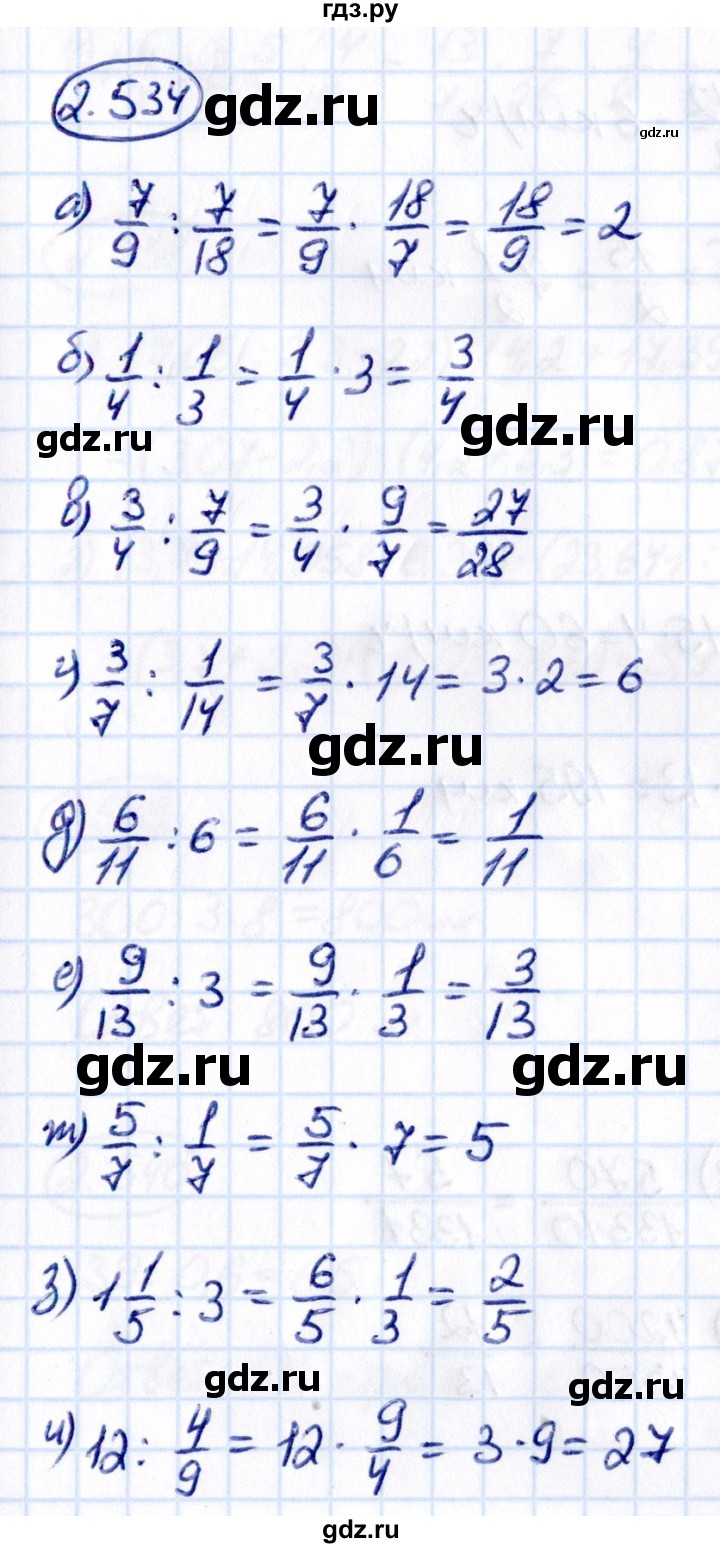 гдз.ру
2.534
gdz.ru
gdz.ru
а) 7/9 : 7/18 = 7/9 · 18/7 = 18/9 = 2
б) 1/4 : 1/3 = 1/4 · 3 = 3/4
gdz.ru
gdz.ru
в) 3/4 : 7/9 = 3/4 · 9/7 = 27/28
г) 3/7 : 1/14 = 3/7 · 14 = 3 · 2 = 6
gdz.ru
д) 6/11 : 6 = 6/11 · 1/6 = 1/11
е) 9/13 : 3 = 9/13 · 1/3 = 3/13
gdz.ru
gdz.ru
ж) 5/7 : 1/7 = 5/7 · 7 = 5
з) 1 1/5 : 3 = 6/5 · 1/3 = 2/5
gdz.ru
gdz.ru
и) 12 : 4/9 = 12 · 9/4 = 3 · 9 = 27
gdz.ru